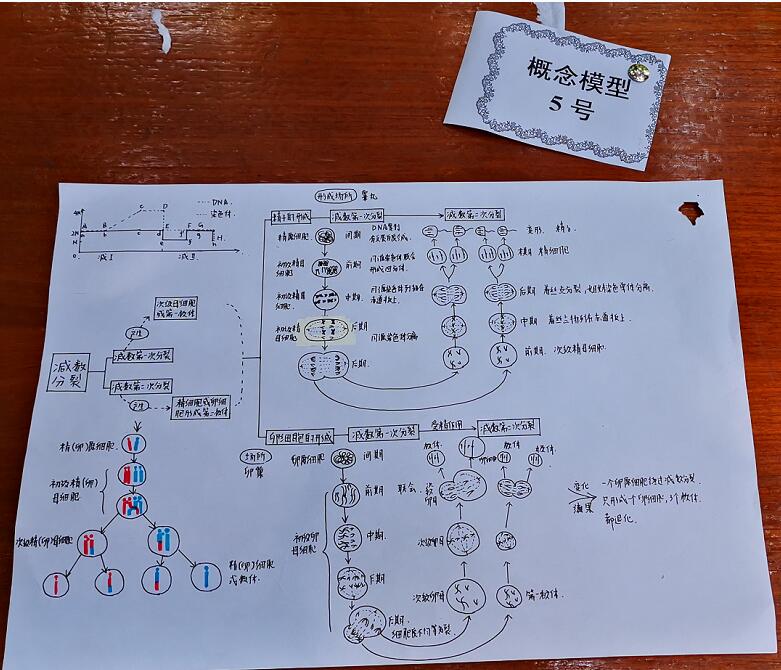 概念模型
5号
DNA
染色体
4N
2N
N
0
减I
减II
形成场所 睾丸
精子的形成
减数第一次分裂
减数第二次分裂
精原细胞
间期
DNA复制
变形 精子
末期 精细胞
初级精母
细胞
前期
同源染色体联会
形成四分体
初级精母
细胞
中期
后期
初级精
母细胞
后期
同源染色体分离
中期
后期
前期 次级精母细胞
次级卵母细胞
或第一极体
产生
减数
分裂
减数第一次分裂
减数第二次分裂
产生
精细胞或卵细
胞形成第二极体
精(卵)原细胞
初级精(卵)
母细胞
次级精(卵)母细胞
精(卵)细胞
或极体
卵细胞的形成
减数第一次分裂
受精作用
减数第二次分裂
场所
卵巢
卵原细胞
间期
极体
极体
极体
前期
联会
初级卵
母细胞
中期
次级卵母
后期
次级卵母
第一极体
后期
细胞质不均等分裂
变化
结果
一个卵原细胞经过减数分裂
只形成一个卵细胞,3个极体
都退化.